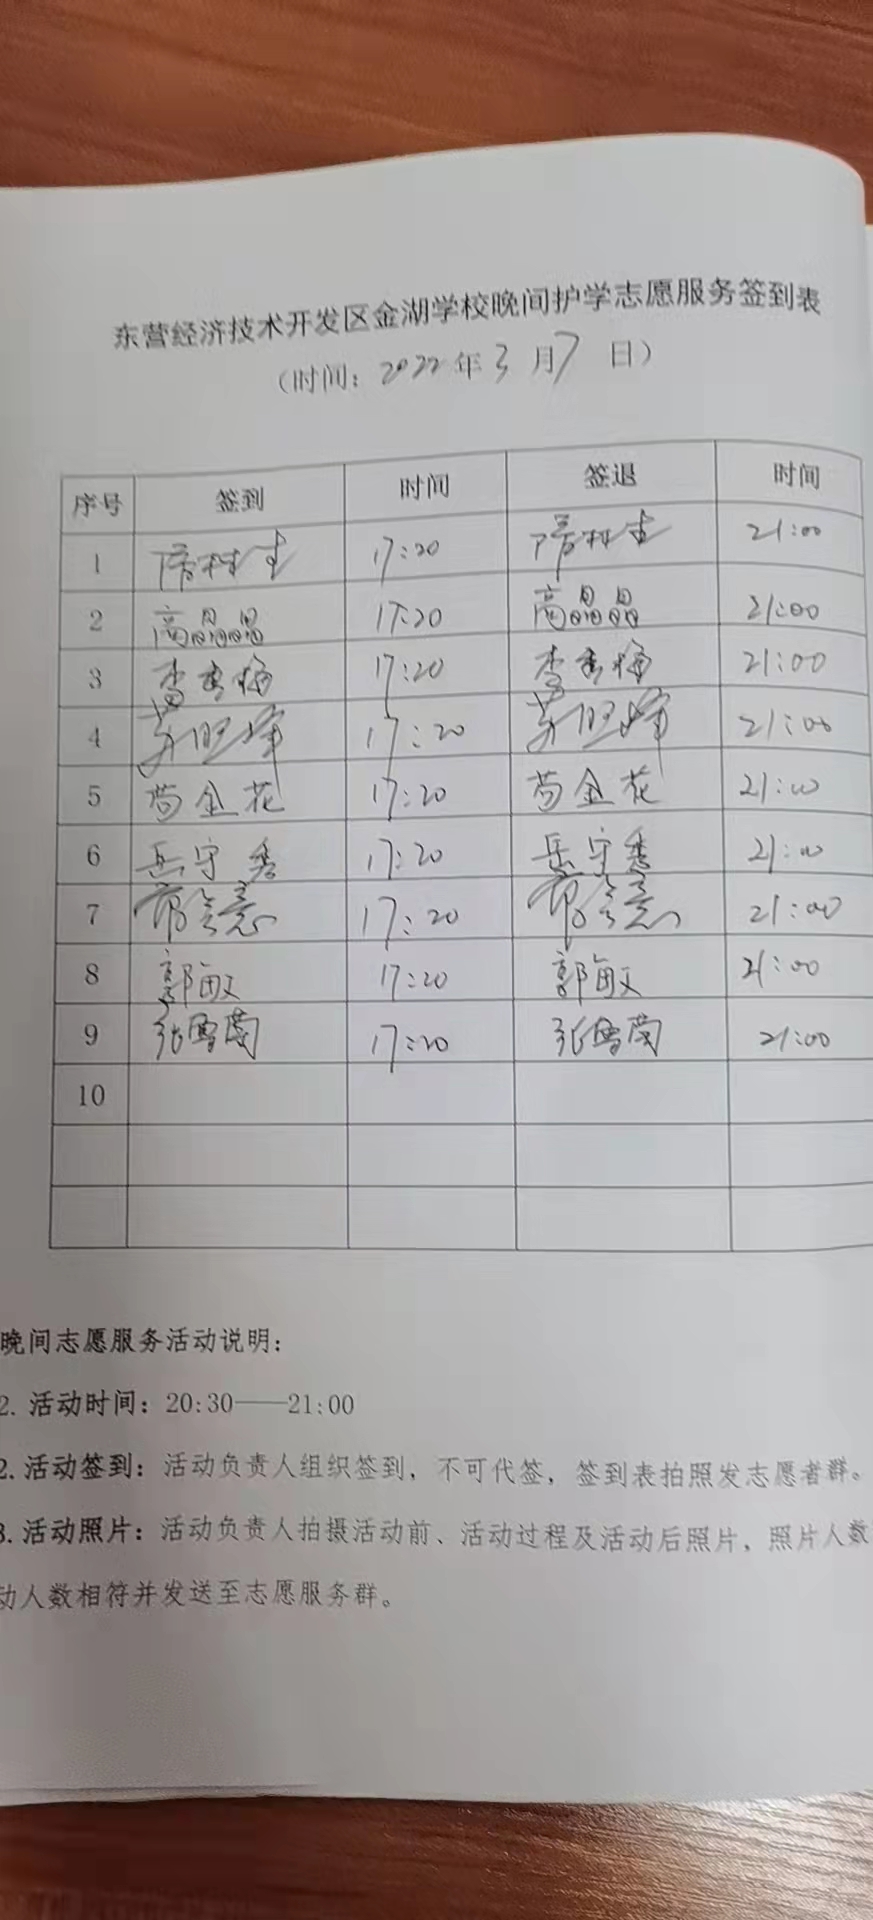 东营经济技术开发区金湖学校晚间护学志愿服务签到表
（时间：2022年3月7日）
序号 签到 时间 签退 时间
1 17:20 21:00
2 高晶晶 17:20 高晶晶 21:00
3 李秀梅 17:20 李秀梅 21:00
4 17:20 21:00
5 苟金花 17:20 苟金花 21:00
6 岳守秀 17:20 岳守秀 21:00
7 17:20 21:00
8 郭敏 17:20 郭敏 21:00
9 张雪兰 17:20 张雪兰 21:00
10
晚间志愿服务活动说明：
2. 活动时间：20:30——21:00
2. 活动签到：活动负责人组织签到，不可代签，签到表拍照发志愿者群。
3. 活动照片：活动负责人拍摄活动前、活动过程及活动后照片，照片人数
动人数相符并发送至志愿服务群。